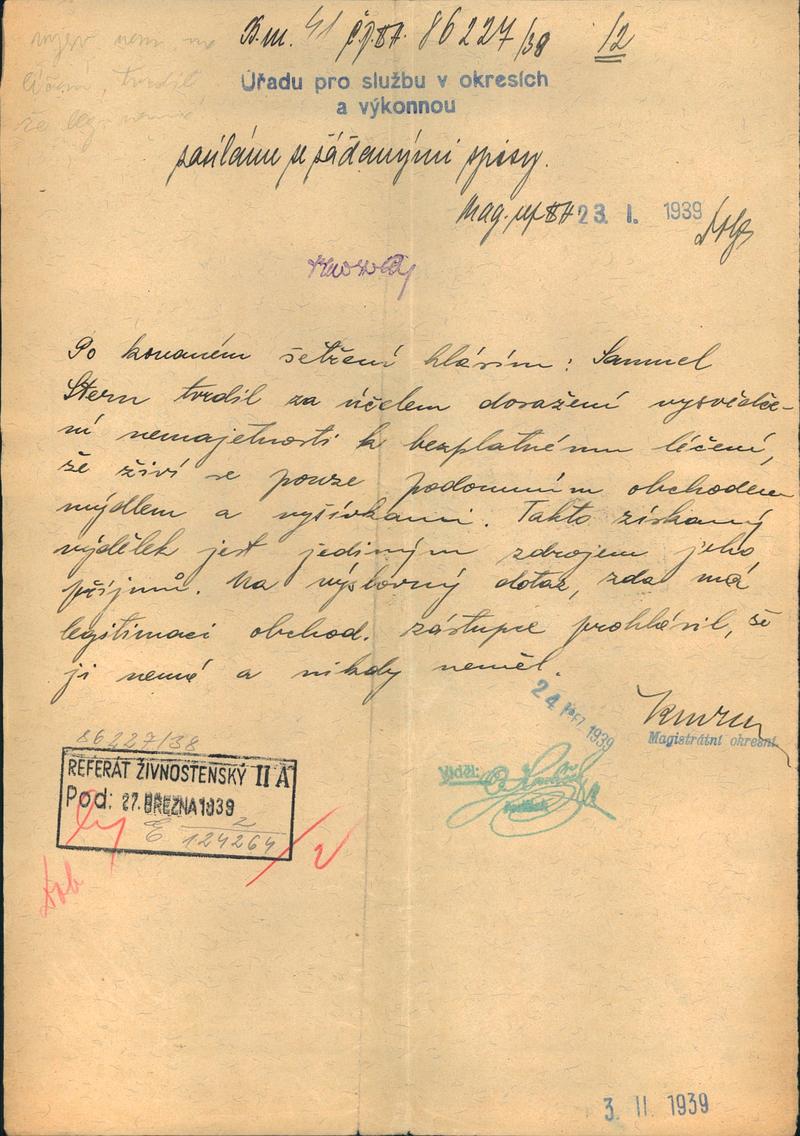 B.m. 41 č.j. II A. 86227/38 12
Úřadu pro službu v okresích
a výkonnou
zasíláme se žádanými spisy.
Mag. ref. II A 23. I. 1939
Po konaném šetření hlásím: Samuel
Stern tvrdil za účelem dosažení vysvědče-
ní nemajetnosti k bezplatnému léčení,
že živí se pouze podomním obchodem
mýdlem a vyšívkami. Takto získaný
výdělek jest jediným zdrojem jeho
příjmů. Na výslovný dotaz, zda má
legitimaci obchod. zástupce prohlásil, že
ji nemá a nikdy neměl.
24. 1939
Magistrátní okresní
Viděl:
86227/38
REFERÁT ŽIVNOSTENSKÝ II A
Pod: 27. BŘEZNA 1939
2
124264
/2
3. II 1939